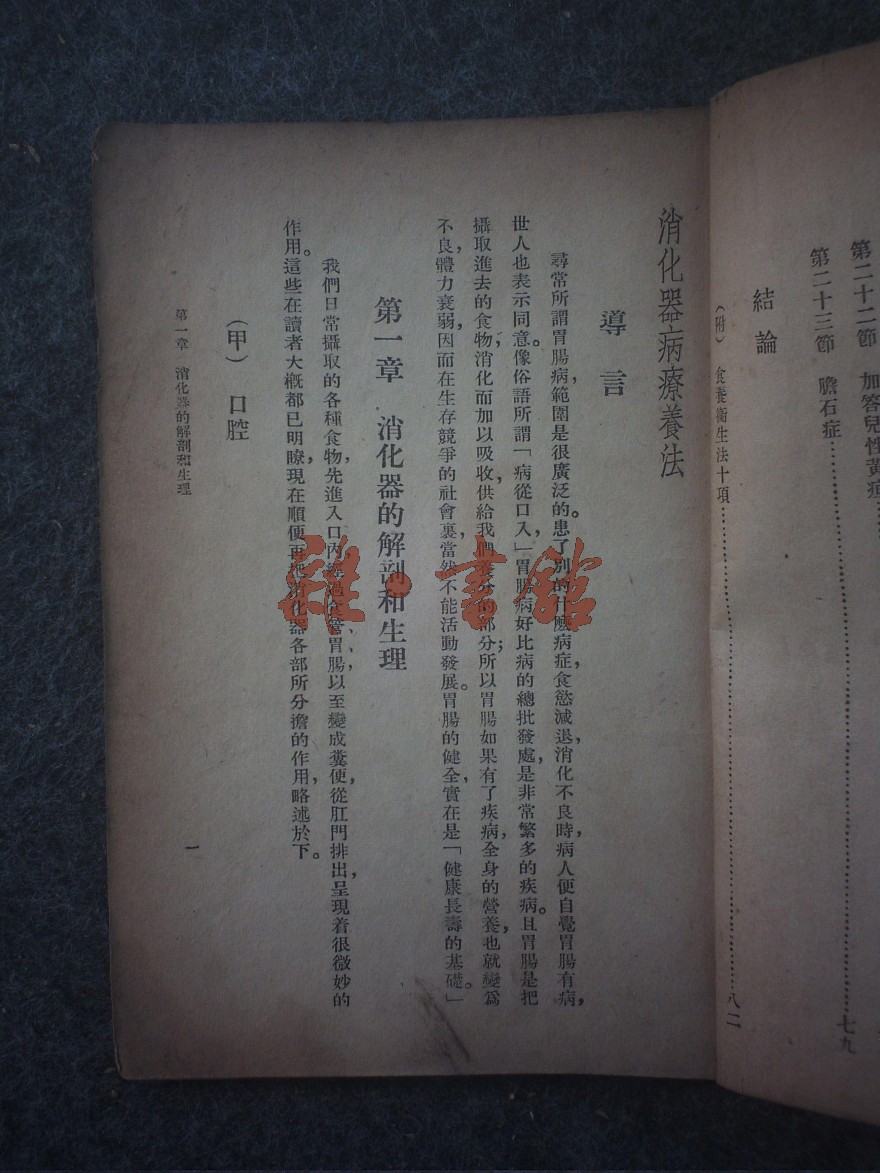 第二十二節 加答兒性黃疸
第二十三節 膽石症……七九
結論
(附) 食養衞生法十項……八二
消化器病療養法
導言
尋常所謂胃腸病,範圍是很廣泛的。患了別的什麼病症,食慾減退,消化不良時,病人便自覺胃腸有病,
世人也表示同意。像俗語所謂「病從口入」,胃腸病好比病的總批發處,是非常繁多的疾病。且胃腸是把
攝取進去的食物,消化而加以吸收,供給我們養分的部分;所以胃腸如果有了疾病,全身的營養,也就變爲
不良,體力衰弱,因而在生存競爭的社會裏,當然不能活動發展。胃腸的健全,實在是「健康長壽的基礎。」
第一章 消化器的解剖和生理
我們日常攝取的各種食物,先進入口內,經過食管、胃、腸,以至變成糞便,從肛門排出,呈現着很微妙的
作用。這些在讀者大槪都已明瞭,現在順便再把消化器各部所分擔的作用,略述於下。
(甲) 口腔
第一章 消化器的解剖和生理
一
雜·書館